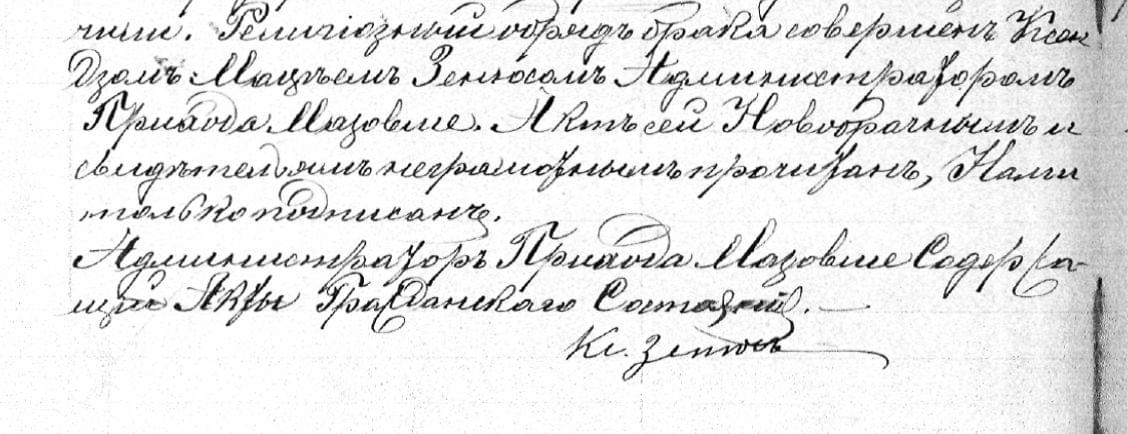 чили. Религіозный обрядъ брака совершенъ Ксен
дзомъ Мацѣемъ Зенюсомъ Администраторомъ
Прихода Мазовше. Актъ сей Новобрачнымъ и
свидѣтелямъ неграмотнымъ прочитанъ, Нами
только подписанъ.
Администраторъ Прихода Мазовше Содержа-
щій Акты Гражданскаго Состоянія.
Кс. Зенюсъ